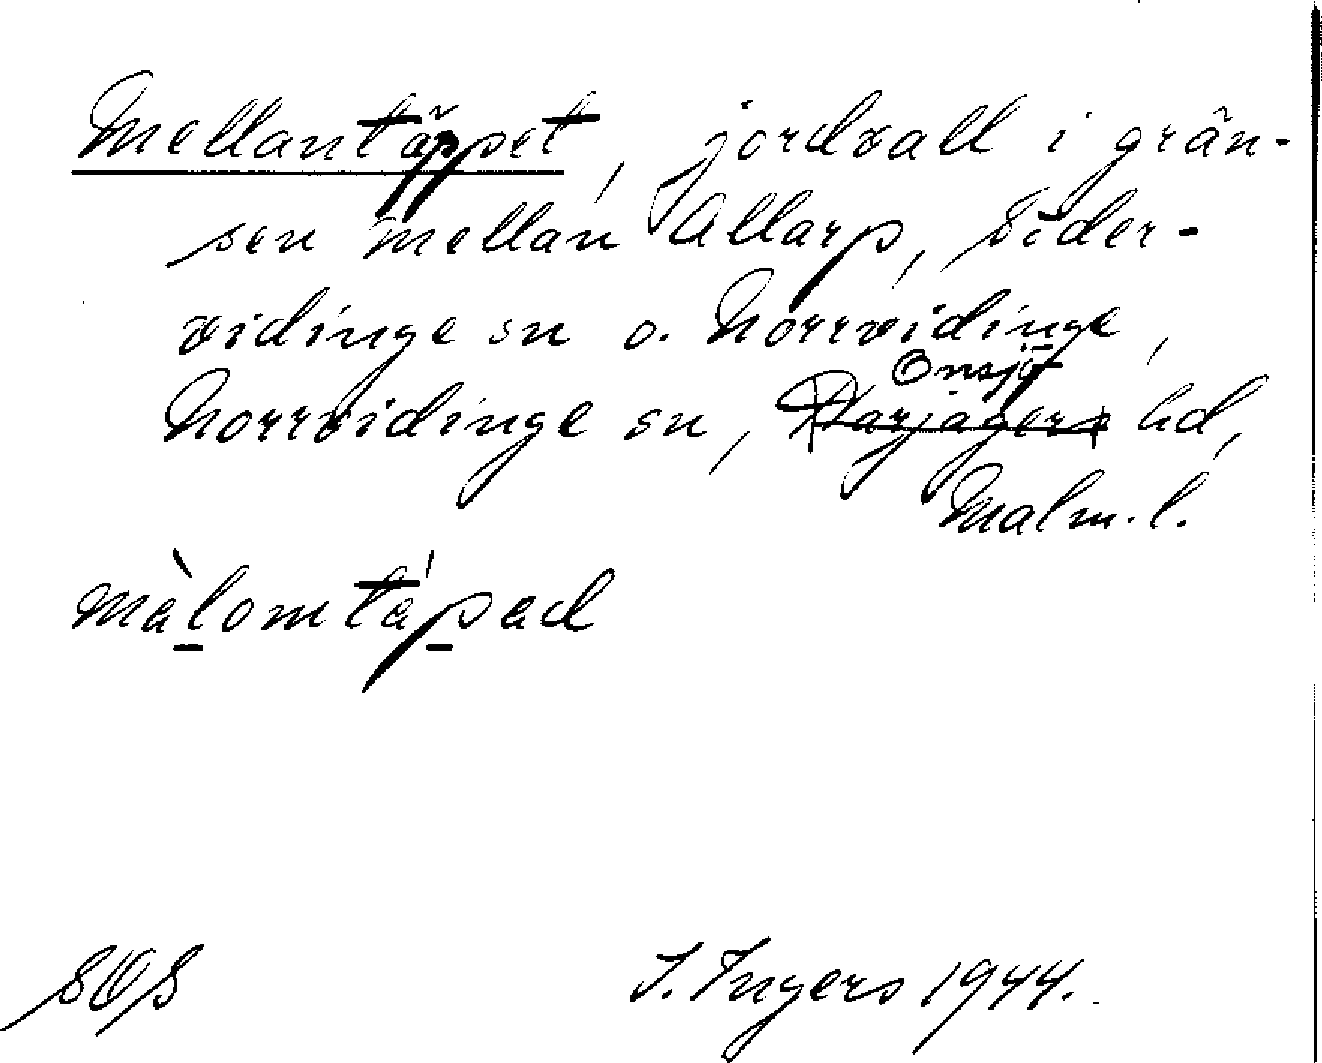 Mellantäppet, jordvall i grän-
sen mellan Allarp, Söder-
vidinge sn o. Norrvidinge,
Onsjö
Norrvidinge sn, Harjagers hd,
Malm. l.
mà̲lomtáp̲ad
SOS
I. Ingers 1944.